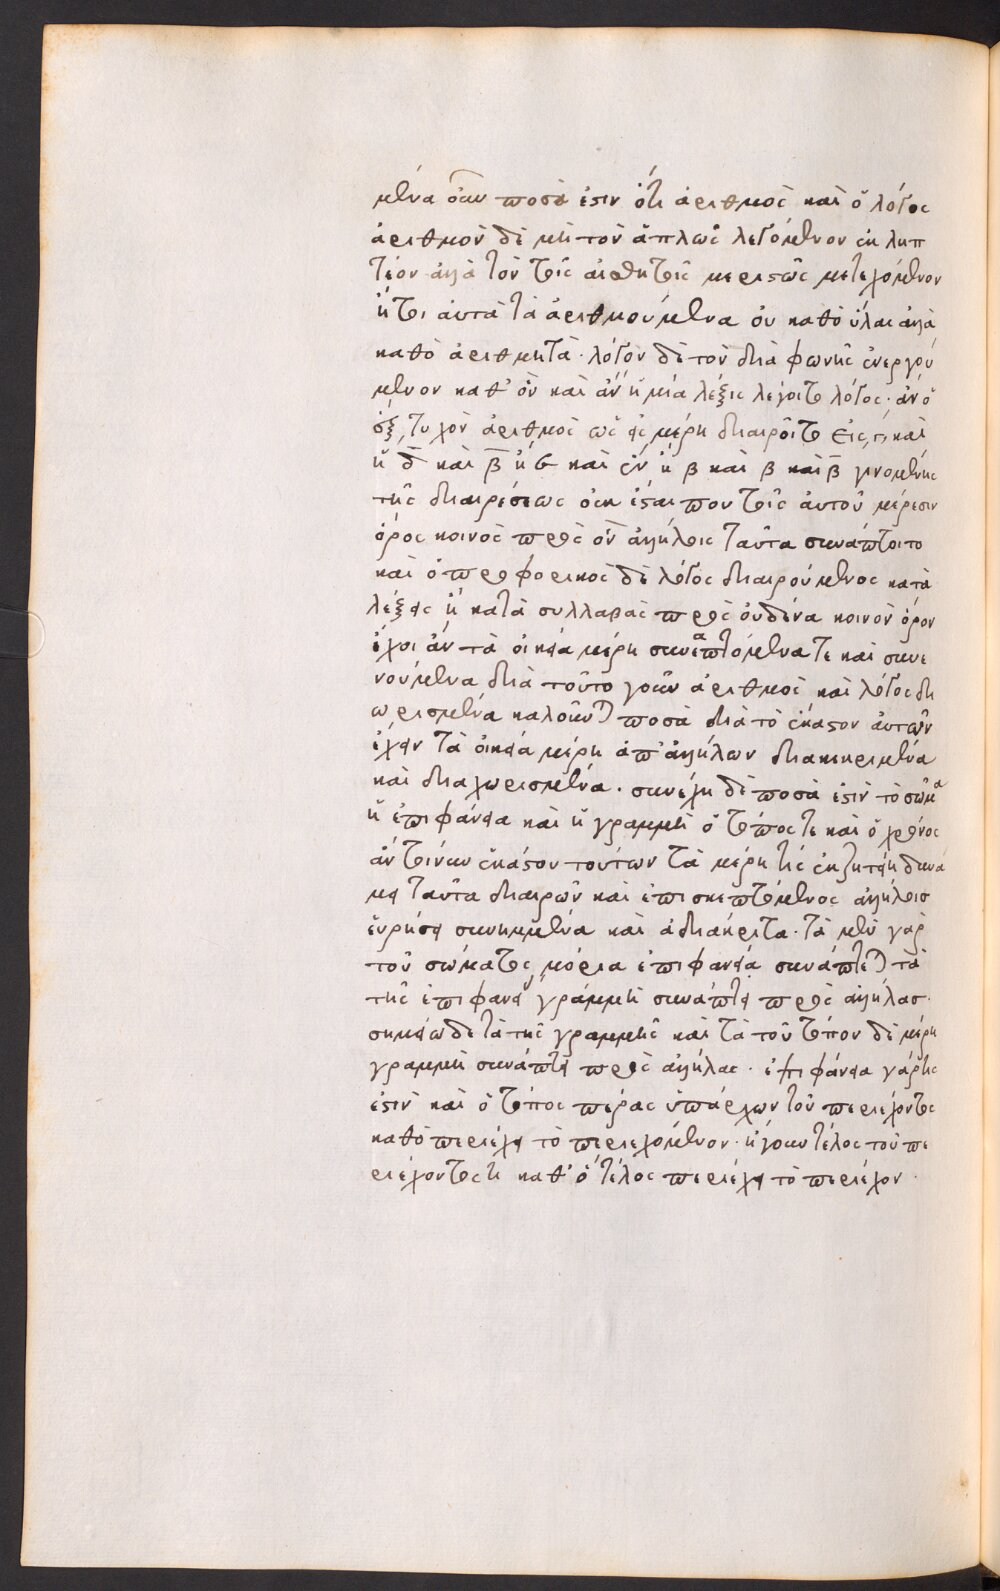 μένα οὖν ποσά ἐστιν ὅτε ἀριθμὸς καὶ ὁ λόγος
ἀριθμὸν δὲ μὴ τὸν ἁπλῶς λεγόμενον ἐκληπ
τέον ἀλλὰ τὸν τοῖς αἰσθητοῖς μεριστῶς μετεχόμενον
ἤτοι αὐτὰ τὰ ἀριθμούμενα οὐ καθὸ ὗλαι ἀλλὰ
καθὸ ἀριθμητά · λόγον δὲ τὸν διὰ φωνῆς ἐνεργού
μενον καθ' ὃν καὶ ἂν ἡ μία λέξις λέγοιτο λόγος · ἂν ὁ
ϛ, τυχὸν ἀριθμὸς ὡς εἰς μέρη διαιροῖτο εἰς γ καὶ
ἢ δ καὶ β ἢ ϛ καὶ ἓν ἢ β καὶ β καὶ β γινομένης
τῆς διαιρέσεως οὐκ ἔσται που τοῖς αὐτοῦ μέρεσιν
ὅρος κοινὸς πρὸς ὃν ἀλλήλοις ταῦτα συνάπτοιτο
καὶ ὁ προφορικὸς δὲ λόγος διαιρούμενος κατὰ
λέξεις ἢ κατὰ συλλαβὰς πρὸς οὐδένα κοινὸν ὅρον
ἔχοι ἂν τὰ οἰκεῖα μέρη συναπτόμενα τε καὶ συνε
νούμενα διὰ τοῦτο γοῦν ἀριθμὸς καὶ λόγος δι
ωρισμένα καλοῦνται ποσὰ διὰ τὸ ἕκαστον αὐτῶν
ἔχειν τὰ οἰκεῖα μέρη ἀπ' ἀλλήλων διακεκριμένα
καὶ διαχωρισμένα · συνεχῆ δὲ ποσά ἐστιν τὸ σῶμα
ἡ ἐπιφάνεια καὶ ἡ γραμμὴ ὁ τόπος τε καὶ ὁ χρόνος
ἂν τοίνυν ἑκάστου τούτων τὰ μέρη τίς ἐκζητῇ δυνά
μει ταῦτα διαιρῶν καὶ ἐπισκεπτόμενος ἀλλήλοις
εὑρήσει συνημμένα καὶ ἀδιάκριτα · τὰ μὲν γὰρ
τοῦ σώματος μόρια ἐπιφανεία συνάπτεται τὰ
τῆς ἐπιφανεί γράμμὴ συνάπτει πρὸς ἀλλήλας ·
σημείω δὲ τὰ τῆς γραμμῆς καὶ τὰ τοῦ τόπου δὲ μέρη
γραμμὴ συνάπτει πρὸς ἀλλήλας · ἐπιφάνεια γάρ τις
ἐστὶν καὶ ὁ τόπος πέρας ὑπάρχων τοῦ περιέχοντος
καθὸ περιέχει τὸ περιεχόμενον · ἤγουν τέλος τοῦ πε
ριέχοντός τε καθ' ὃ τέλος περιέχει τὸ περιέχον ·